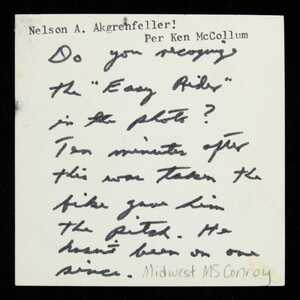 Nelson A. Akgrenfeller!
Per Ken McCollum
Do you recognize
the "Easy Rider"
in the photo?
Ten minutes after
this was taken the
bike gave him
the pitch. He
hasn't been on one
since. Midwest MS Conroy